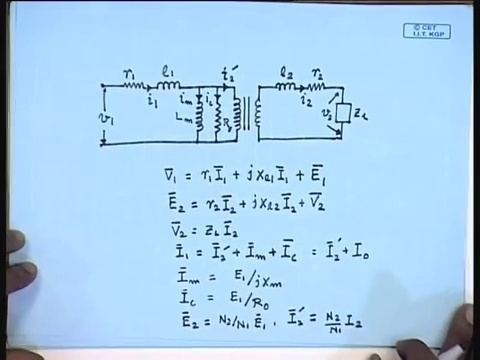 © CET
I.I.T. KGP
r₁ l₁ i₂′ l₂ r₂
i₁ iₘ i_c i₂
v₁ Lₘ R₀ v₂ Z_L
V̅₁ = r₁I̅₁ + jx_{l1}I̅₁ + E̅₁
E̅₂ = r₂I̅₂ + jx_{l2}I̅₂ + V̅₂
V̅₂ = Z_L I̅₂
I̅₁ = I̅₂′ + I̅ₘ + I̅_c = I̅₂′ + I₀
I̅ₘ = E₁/jxₘ
I̅_c = E₁/R₀
E̅₂ = N₂/N₁ E̅₁. I̅₂′ = N₂/N₁ I₂